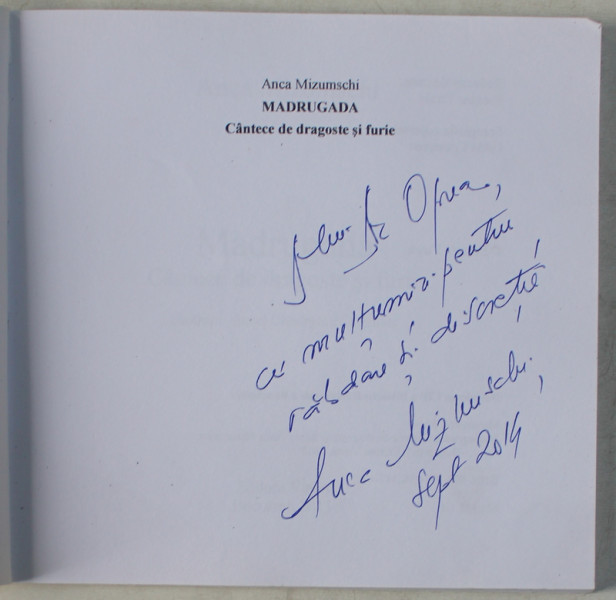 Anca Mizumschi
MADRUGADA
Cântece de dragoste și furie
Dlui Dr Oprea,
cu mulțumiri pentru
răbdare și discreție
Anca Mizumschi,
Sept 2014